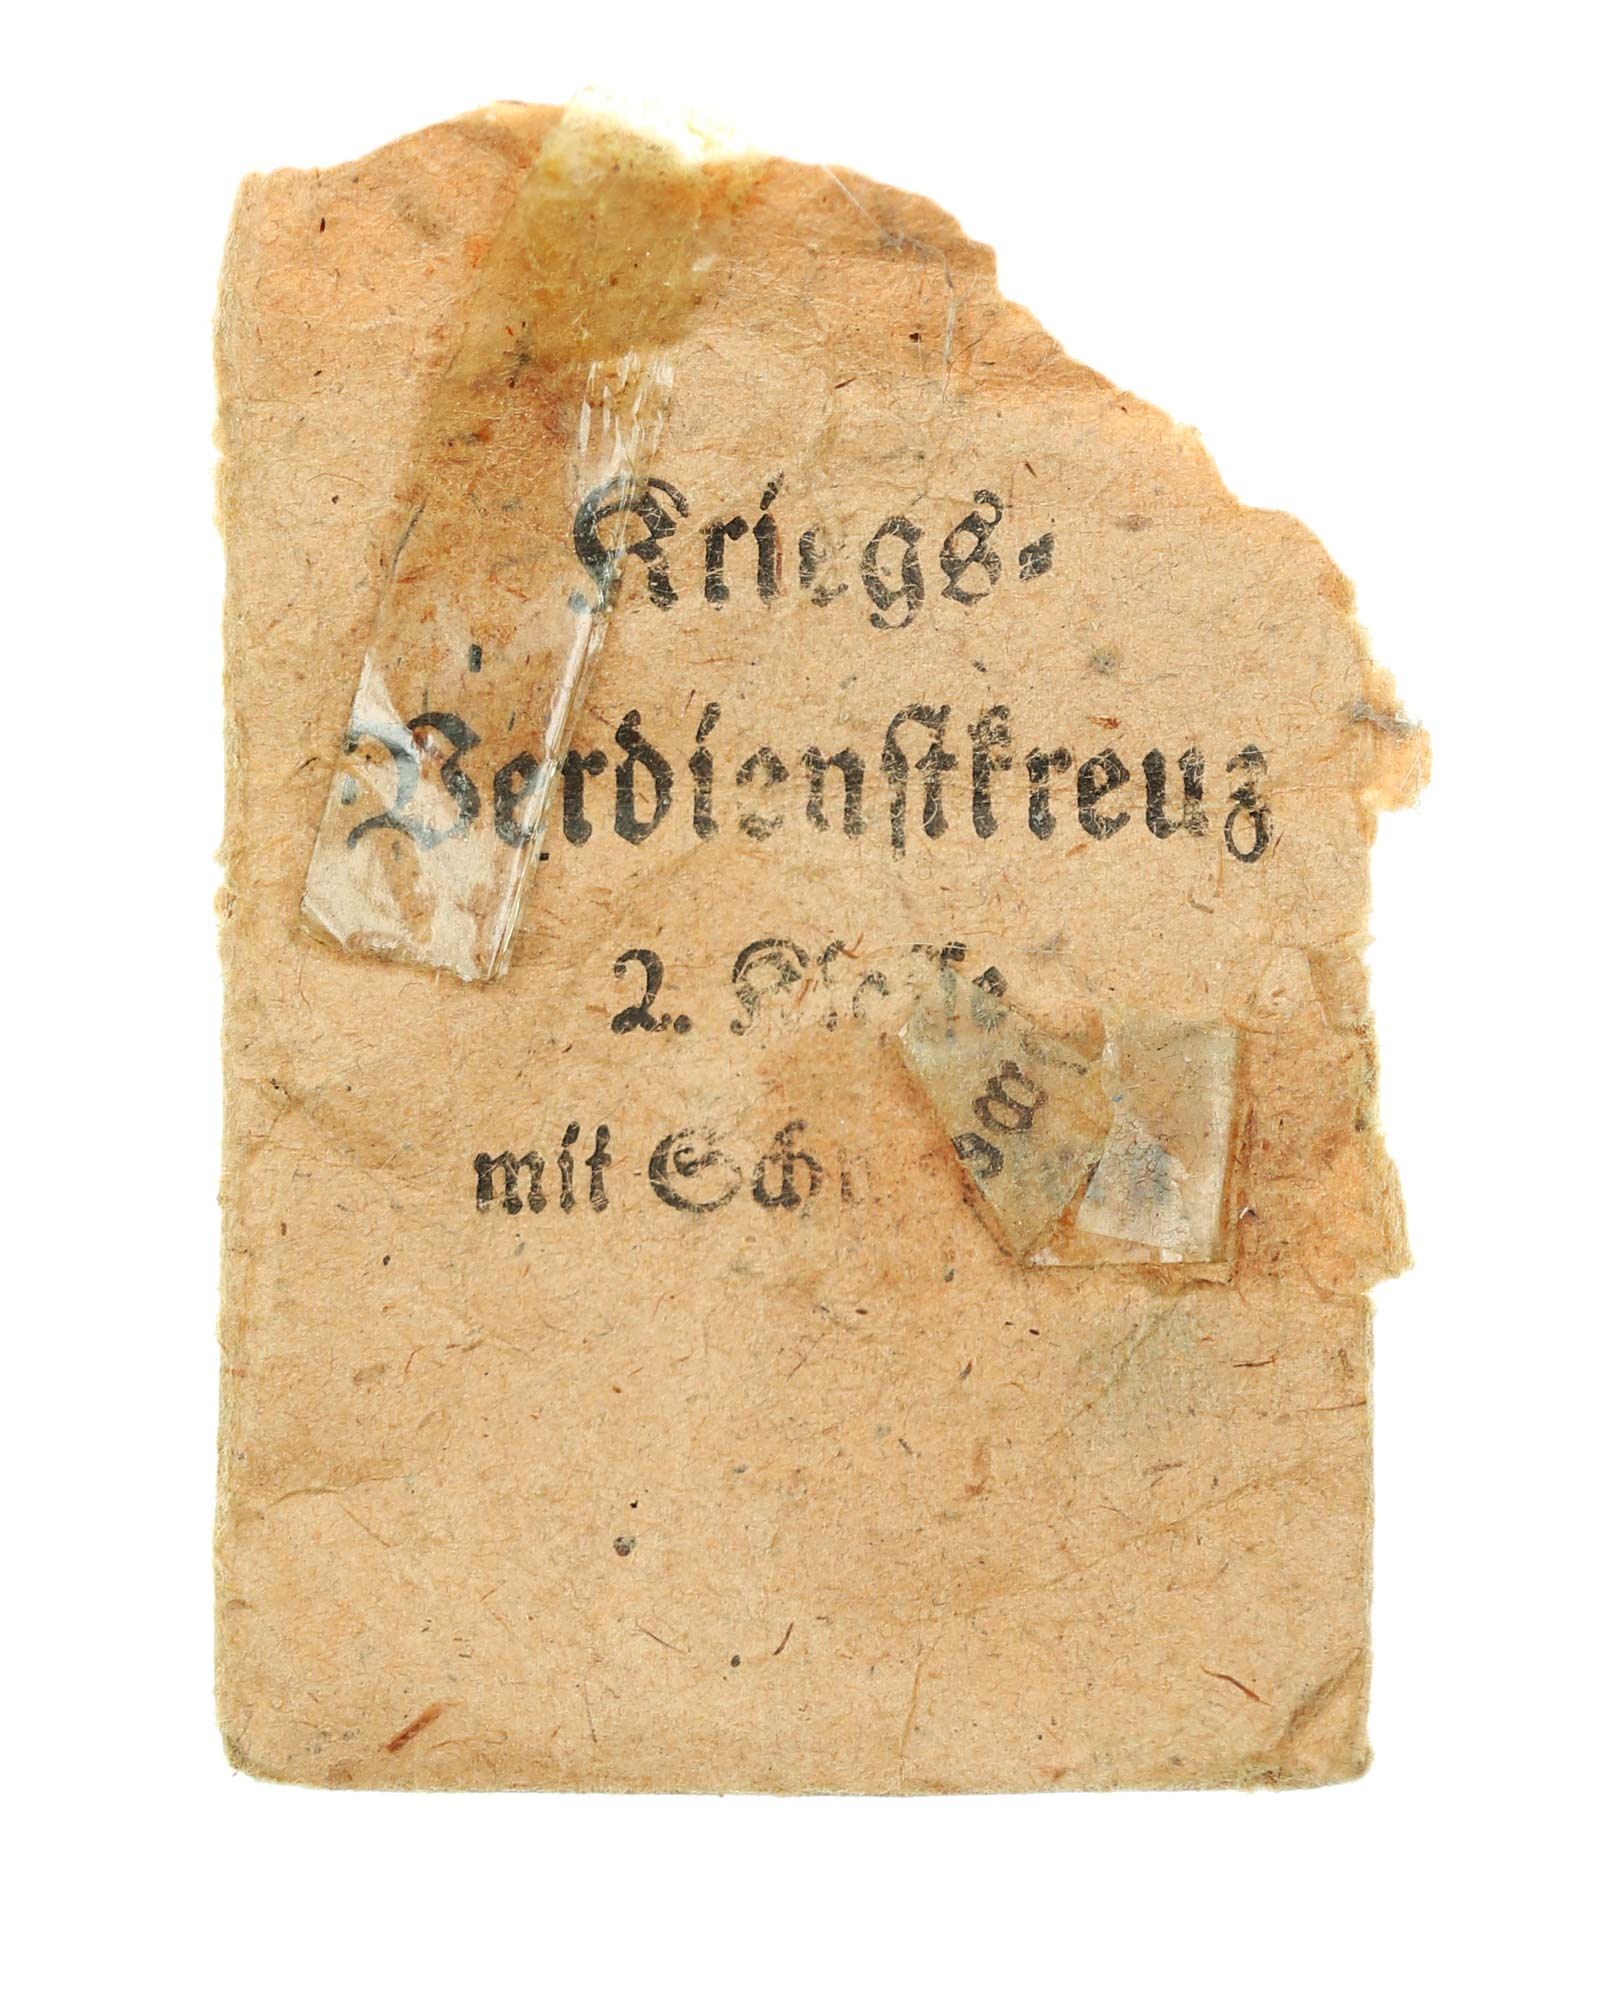 Kriegs-
Verdienstkreuz
2. Klasse
mit